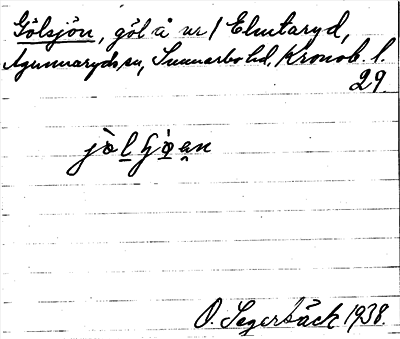 Gölsjön, göl å nr 1 Elmtaryd,
Agunnaryds sn, Sunnerbo hd, Kronob. l.
29.
O. Segerbäck 1938.